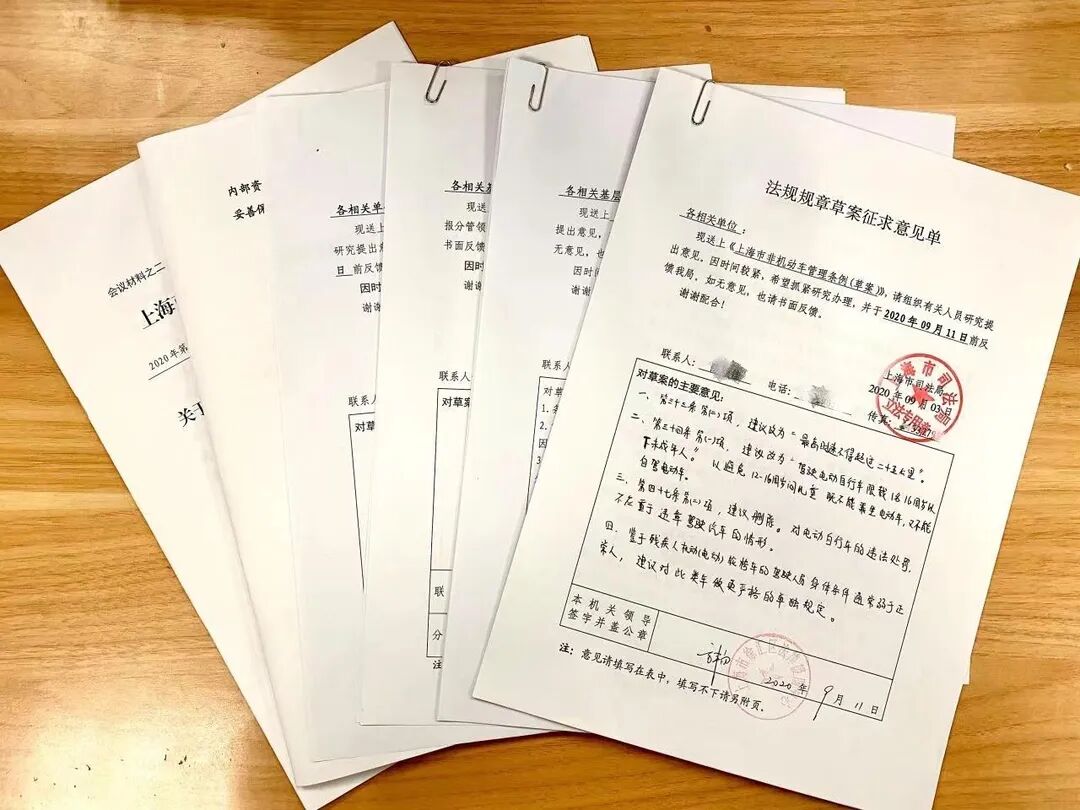 会议材料之二
上海
2020年第
关于
内部资
妥善保
各相关单
现送上
研究提出意
日前反馈
因时
谢谢
联系人
对草案
各相关基
现送
报分管领
书面反馈
因时
谢谢
联系人
对草案
联
分
注
各相关基层
现送上
提出意见，
无意见，也
因时间
谢谢
联系人
对草
法规规章草案征求意见单
各相关单位：
现送上《上海市非机动车管理条例(草案)》，请组织有关人员研究提
出意见，因时间较紧，希望抓紧研究办理，并于2020年09月11日前反
馈我局，如无意见，也请书面反馈。
谢谢配合！
上海市司法局
2020年09月03日
联系人：
电话：
传真：
上海市司法局
立法专用章
对草案的主要意见：
一、第三十三条第(二)项，建议改为“最高时速不得超过二十五公里”。
二、第三十四条第(一)项，建议改为“驾驶电动自行车限载1名16周岁以
下未成年人。”以避免12-16周岁间儿童既不能乘坐电动车，又不能
自驾电动车。
三、第四十七条第(二)项，建议删除。对电动自行车的违法处罚，
不应重于违章驾驶汽车的情形。
四、鉴于残疾人机动(电动)轮椅车的驾驶人员身体条件通常弱于正
常人，建议对此类车做更严格的单独规定。
本机关领导
签字并盖公章
2020年9月11日
注：意见请填写在表中，填写不下请另附页。